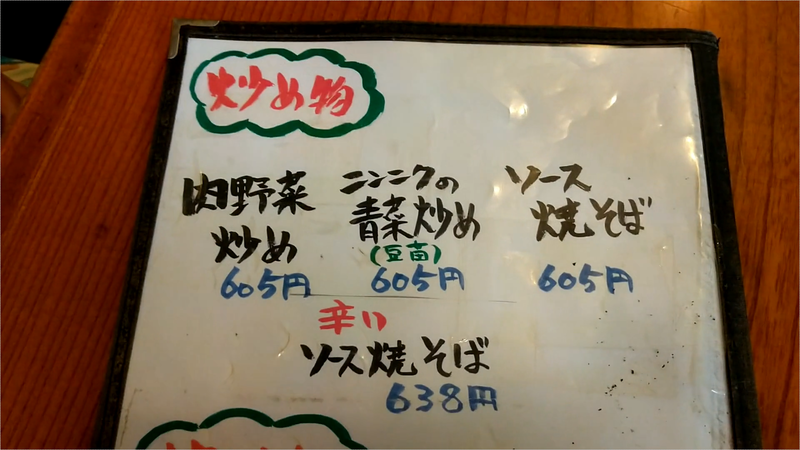 炒め物
肉野菜
炒め
605円
ニンニクの
青菜炒め
(豆苗)
605円
ソース
焼そば
605円
辛い
ソース焼そば
638円